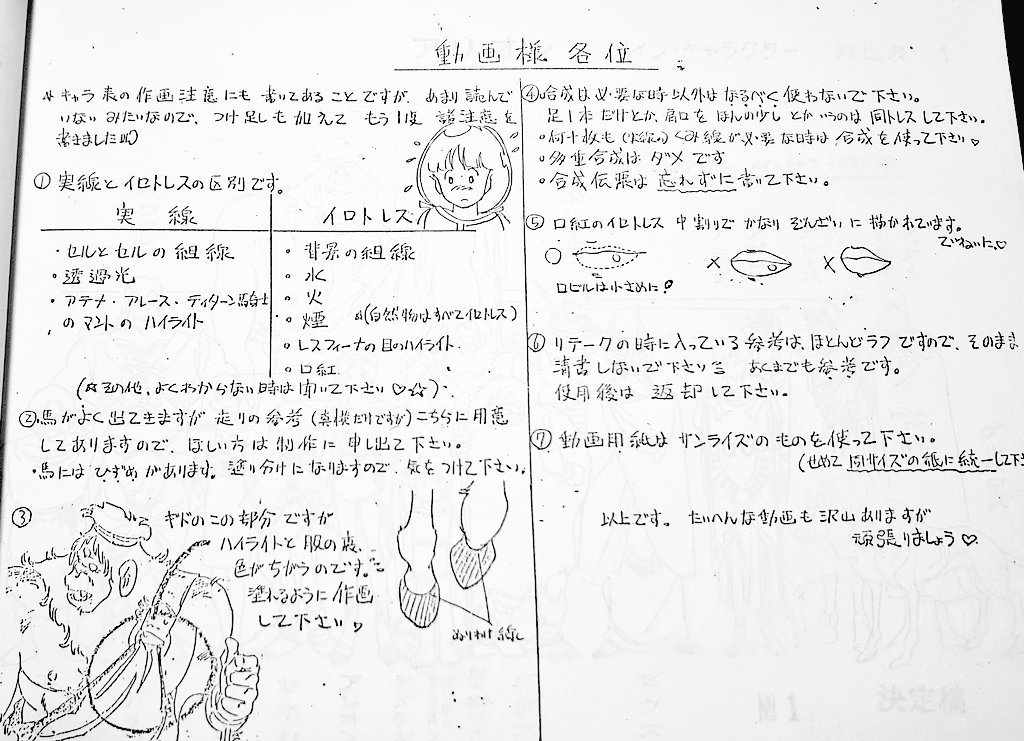 動画様各位
☆キャラ表の作画注意にも書いてあることですが、あまり読んで
いないみたいなので、つけ足しも加えてもう1度
書きました
① 実線とイロトレスの区別です。
実線
・セルとセルの組線
・透過光
・アテナ・アレース・ティターン騎士
のマントのハイライト
イロトレス
・背景の組線
・水
・火
・煙 (自然物はすべてイロトレス)
・レスフィーナの目のハイライト
・口紅
(☆その他、よくわからない時は聞いて下さい♡☆)
②馬がよく出てきますが走りの参考(真横だけですが)こちらに用意
してありますので、ほしい方は制作に申し出て下さい。
・馬にはひずめがあります。塗り分けになりますので、気をつけて下さい。
③ ギドのこの部分ですが
ハイライトと服の裏、
色がちがうのです。
塗れるように作画
して下さい♡
ぬりわけ線
④合成は必要な時以外はなるべく使わないで下さい。
足1本だけとか、肩口をほんの少しとかいうのは同トレスして下さい。
・何十枚も(実線の)くみ線が必要な時は合成を使って下さい♡
・多重合成はダメです
・合成伝票は忘れずに書いて下さい。
⑤ 口紅のイロトレス 中割りでかなりぞんざいに描かれています。
ていねいに♡
○ × ×
口ビルは小さめに!
⑥ リテークの時に入っている参考は、ほとんどラフですので、そのまま
清書しないで下さい あくまでも参考です。
使用後は返却して下さい。
⑦ 動画用紙はサンライズのものを使って下さい。
(せめて同サイズの紙に統一して下さ
以上です。たいへんな動画も沢山ありますが
頑張りましょう♡
№1
決定稿